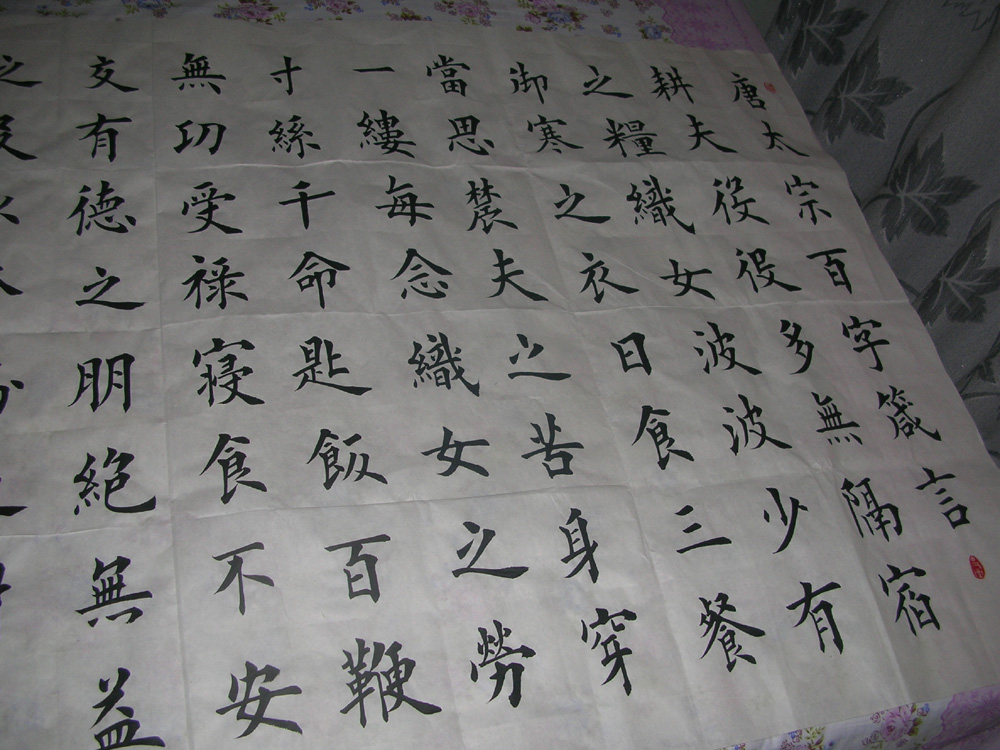 唐太宗百字箴言
耕夫役役多無隔宿
之糧織女波波少有
御寒之衣日食三餐
當思農夫之苦身穿
一縷每念織女之勞
寸絲千命匙飯百鞭
無功受祿寝食不安
交有德之朋絕無益
之